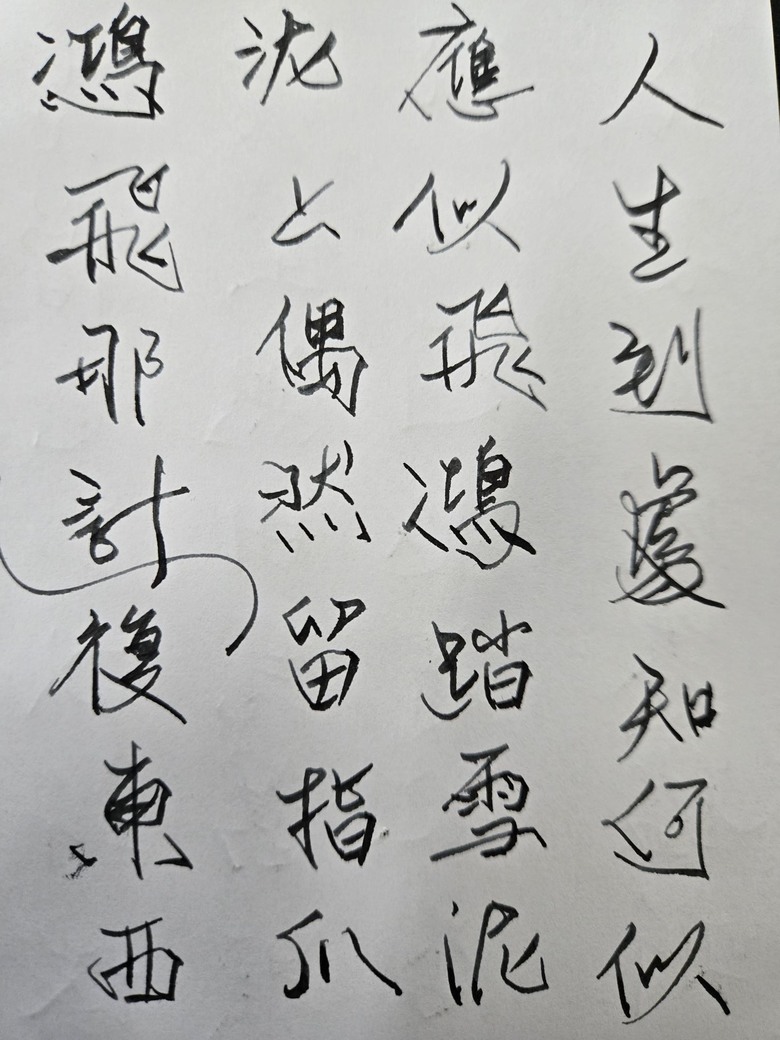 人生到處知何似
應似飛鴻踏雪泥
泥上偶然留指爪
鴻飛那計復東西